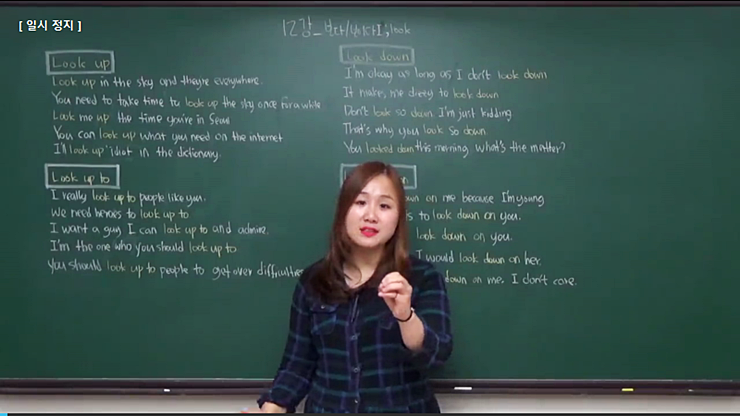 [ 일시 정지 ]
12강_보다/보이다I, look
Look up
Look up in the sky and they're everywhere.
You need to take time to look up the sky once for a while
Look me up the time you're in Seoul
You can look up what you need on the internet
I'll look up 'idiot' in the dictionary.
Look up to
I really look up to people like you.
We need heroes to look up to
I want a guy I can look up to and admire.
I'm the one who you should look up to
You should look up to people to get over difficulties
Look down
I'm okay as long as I don't look down
It makes me dizzy to look down
Don't look so down. I'm just kidding.
That's why you look so down.
You looked down this morning. What's the mother?
on me because I'm young
to look down on you.
look down on you.
I would look down on her.
down on me. I don't care.